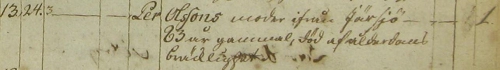 13. 24. 3. Per Olssons moder ifrån Farsjö 1
83 år gammal, död af ålderdoms
bräcklighet